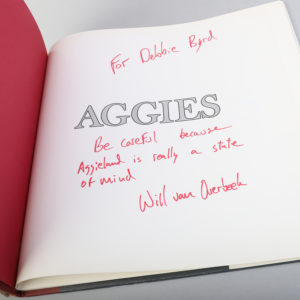 For Debbie Byrd
AGGIES
Be careful because
Aggieland is really a state
of mind
Will van Overbeek